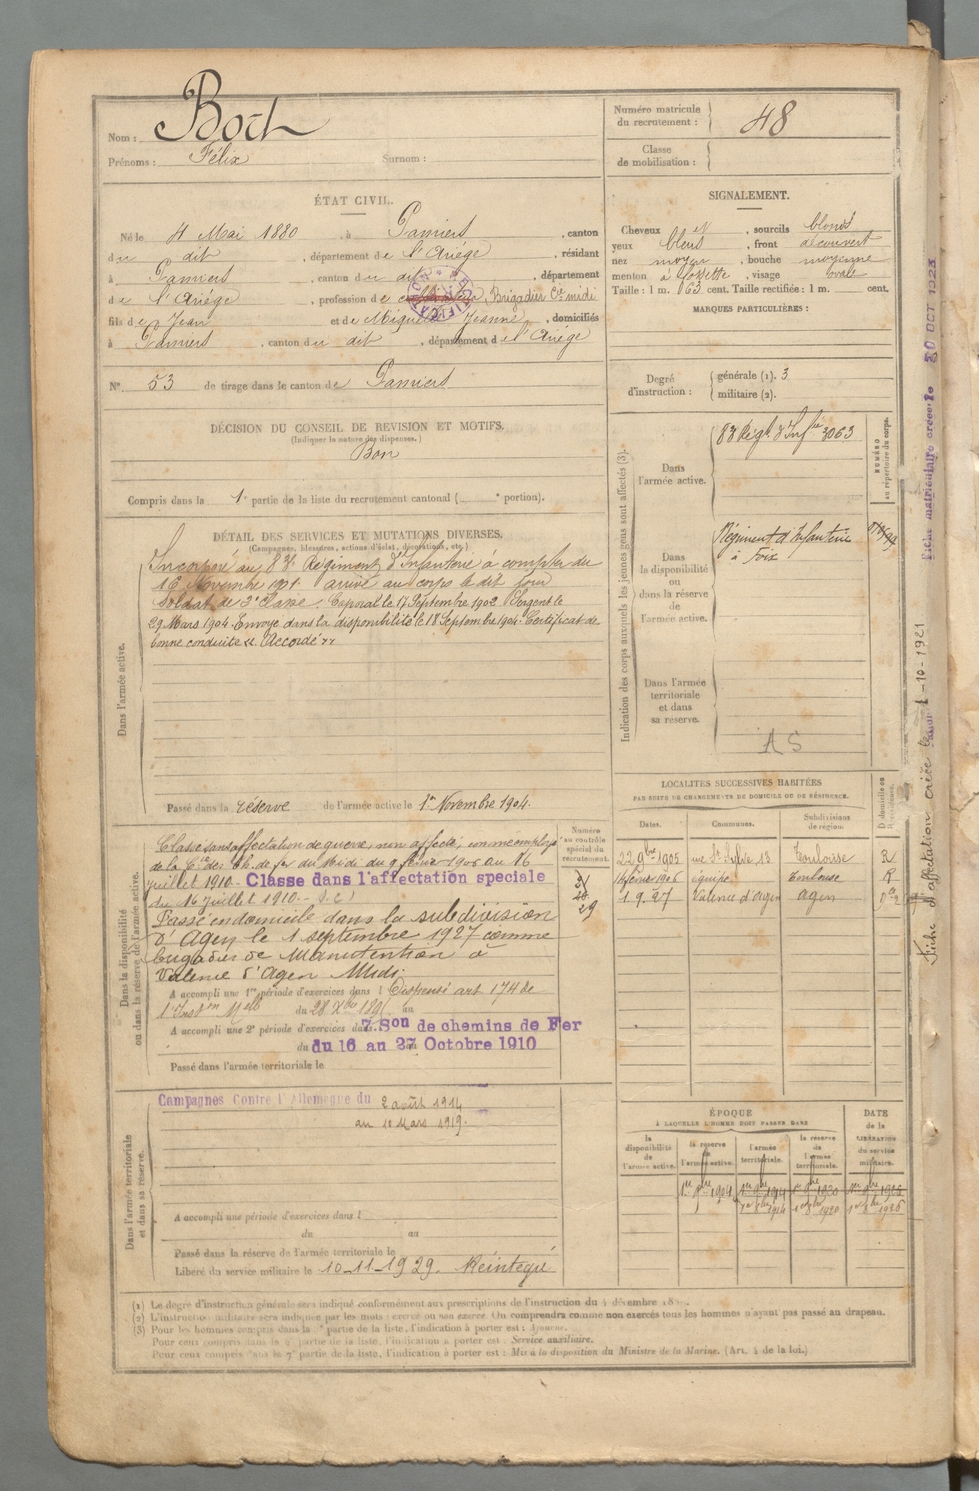 Nom : Boch
Prénoms : Félix Surnom :
Numéro matricule du recrutement : 48
Classe de mobilisation :
ÉTAT CIVIL.
Né le 4 Mai 1880, à Pamiers, canton
du dit, département de l'Ariége, résidant
à Pamiers, canton du dit, département
de l'Ariége, profession de Brigadier Cie midi
fils de Jean et de Jeanne, domiciliés
à Pamiers, canton du dit, département de l'Ariége
N° 53 de tirage dans le canton de Pamiers
SIGNALEMENT.
Cheveux et, sourcils blonds
yeux bleus, front découvert
nez moyen, bouche moyenne
menton à fossette, visage ovale
Taille : 1 m. 63 cent. Taille rectifiée : 1 m. cent.
MARQUES PARTICULIÈRES :
Degré d'instruction : générale (1). 3
militaire (2).
DÉCISION DU CONSEIL DE REVISION ET MOTIFS.
(Indiquer la nature des dispenses.)
Bon
Compris dans la 1e partie de la liste du recrutement cantonal ( e portion).
DÉTAIL DES SERVICES ET MUTATIONS DIVERSES.
(Campagnes, blessures, actions d'éclat, décorations, etc.)
Dans l'armée active.
Incorporé au 83e Régiment d'Infanterie à compter du
16 Novembre 1901. arrivé au corps le dit jour
soldat de 2e classe. Caporal le 17 Septembre 1902. Sergent le
29 Mars 1904. Envoyé dans la disponibilité le 18 Septembre 1904. Certificat de
bonne conduite "Accordé"
Passé dans la réserve de l'armée active le 1er Novembre 1904.
Indication des corps auxquels les jeunes gens sont affectés (3).
NUMÉRO au répertoire du corps.
Dans l'armée active.
83 Régt d'Infie 3063
Dans la disponibilité ou dans la réserve de l'armée active.
Régiment d'Infanterie
à Foix
Dans l'armée territoriale et dans sa réserve.
AS
Dans la disponibilité ou dans la réserve de l'armée active.
Classé sans affectation de guerre, non affecté, comme employé
de la Cie des Ch. de fer du Midi du 9 février 1906 au 16
juillet 1910. Classe dans l'affectation speciale
du 16 juillet 1910.
Passé en domicile dans la subdivision
d'Agen le 1 septembre 1927 comme
brigadier de Manutention à
Valence d'Agen Midi.
A accompli une 1re période d'exercices dans l Dispensé art 174 de
l'Inston Melle du 28 Xbre 1895 au
A accompli une 2e période d'exercices dans 7. Son de chemins de Fer
du 16 au 27 Octobre 1910
Passé dans l'armée territoriale le
Numéro au contrôle spécial du recrutement.
29
LOCALITÉS SUCCESSIVES HABITÉES
PAR SUITE DE CHANGEMENTS DE DOMICILE OU DE RÉSIDENCE.
Dates. Communes. Subdivisions de région. D domicile ou R résidence.
22 9bre 1905 rue St Sylve 13 Toulouse R
14 février 1906 équipe Toulouse R
1.9.27 Valence d'Agen Agen
Dans l'armée territoriale et dans sa réserve.
Campagnes Contre l'Allemagne du 2 août 1914
au 10 Mars 1919.
A accompli une période d'exercices dans l
du au
Passé dans la réserve de l'armée territoriale le
Libéré du service militaire le 10-11-1929. Réintégré
ÉPOQUE
À LAQUELLE L'HOMME DOIT PASSER DANS
DATE de la LIBÉRATION du service militaire.
la disponibilité de l'armée active. la réserve de l'armée active. l'armée territoriale. la réserve de l'armée territoriale.
1er 9bre 1904 1er 9bre 1914 1er 9bre 1920 1er 9bre 1926
1er 8bre 1914 1er 8bre 1920 1er 8bre 1926
(1) Le degré d'instruction générale sera indiqué conformément aux prescriptions de l'instruction du 4 décembre
(2) L'instruction militaire sera indiquée par les mots : exercé ou non exercé. On comprendra comme non exercés tous les hommes n'ayant pas passé au drapeau.
(3) Pour les hommes compris dans la partie de la liste, l'indication à porter est : Ajourné.
Pour ceux compris dans la 6e partie de la liste, l'indication à porter est : Service auxiliaire.
Pour ceux compris dans la 7e partie de la liste, l'indication à porter est : Mis à la disposition du Ministre de la Marine. (Art. 4 de la loi.)
Fiche matriculaire créée le 30 OCT 1923
Fiche d'affectation créée le -10-1921
RECTIFICATION